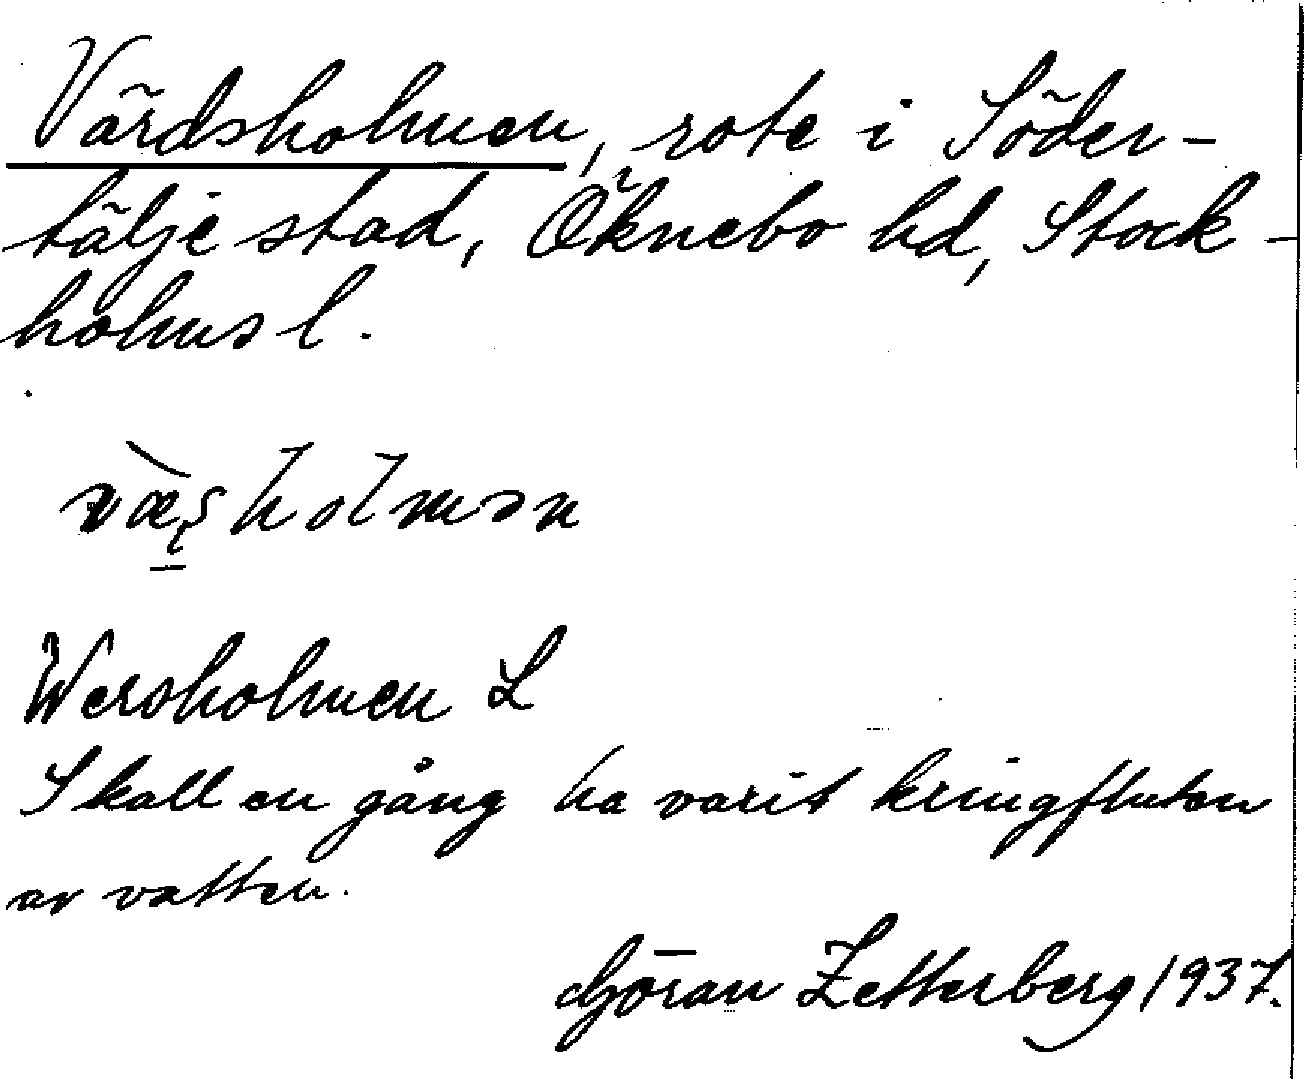 Värdsholmen, rote i Söder-
tälje stad, Öknebo hd, Stock-
holms l.
Wersholmen L
Skall en gång ha varit kringfluten
av vatten.
Göran Zetterberg 1937.